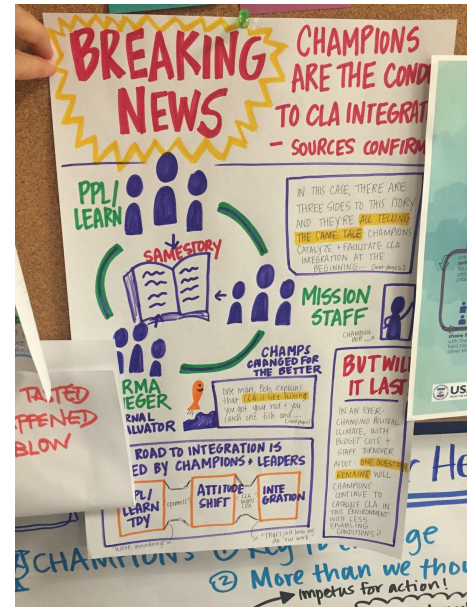 BREAKING
NEWS
CHAMPIONS
ARE THE COND
TO CLA INTEGRAT
- SOURCES CONFIRM
PPL/
LEARN
SAME STORY
IN THIS CASE, THERE ARE
THREE SIDES TO THIS STORY
AND THEY'RE ALL TELLING
THE SAME TALE CHAMPIONS
CATALYZE + FACILITATE CLA
INTEGRATION AT THE
BEGINNING...
MISSION
STAFF
CHAMPION
BOB
CHAMPS
CHANGED FOR
THE BETTER
One man, Bob, explains
that CLA is like fishing
you got your rod + you
catch one fish and ...
RMA
EGER
RNAL
LUATOR
BUT WILL
IT LAST
IN AN EVER-
CHANGING POLITICAL
CLIMATE, WITH
BUDGET CUTS +
STAFF TURNOVER
AFOOT ONE QUESTION
REMAINS WILL
CHAMPIONS
CONTINUE TO
CATALYZE CLA IN
THIS ENVIRONMENT
WITH LESS
ENABLING
CONDITIONS?
ROAD TO INTEGRATION IS
ED BY CHAMPIONS + LEADERS
PL/
LEARN
TDY
ATTITUDE
SHIFT
INTE
GRATION
TASTED
PPENED
BLOW
US
CHAMPIONS
② More than we thou
Impetus for action!